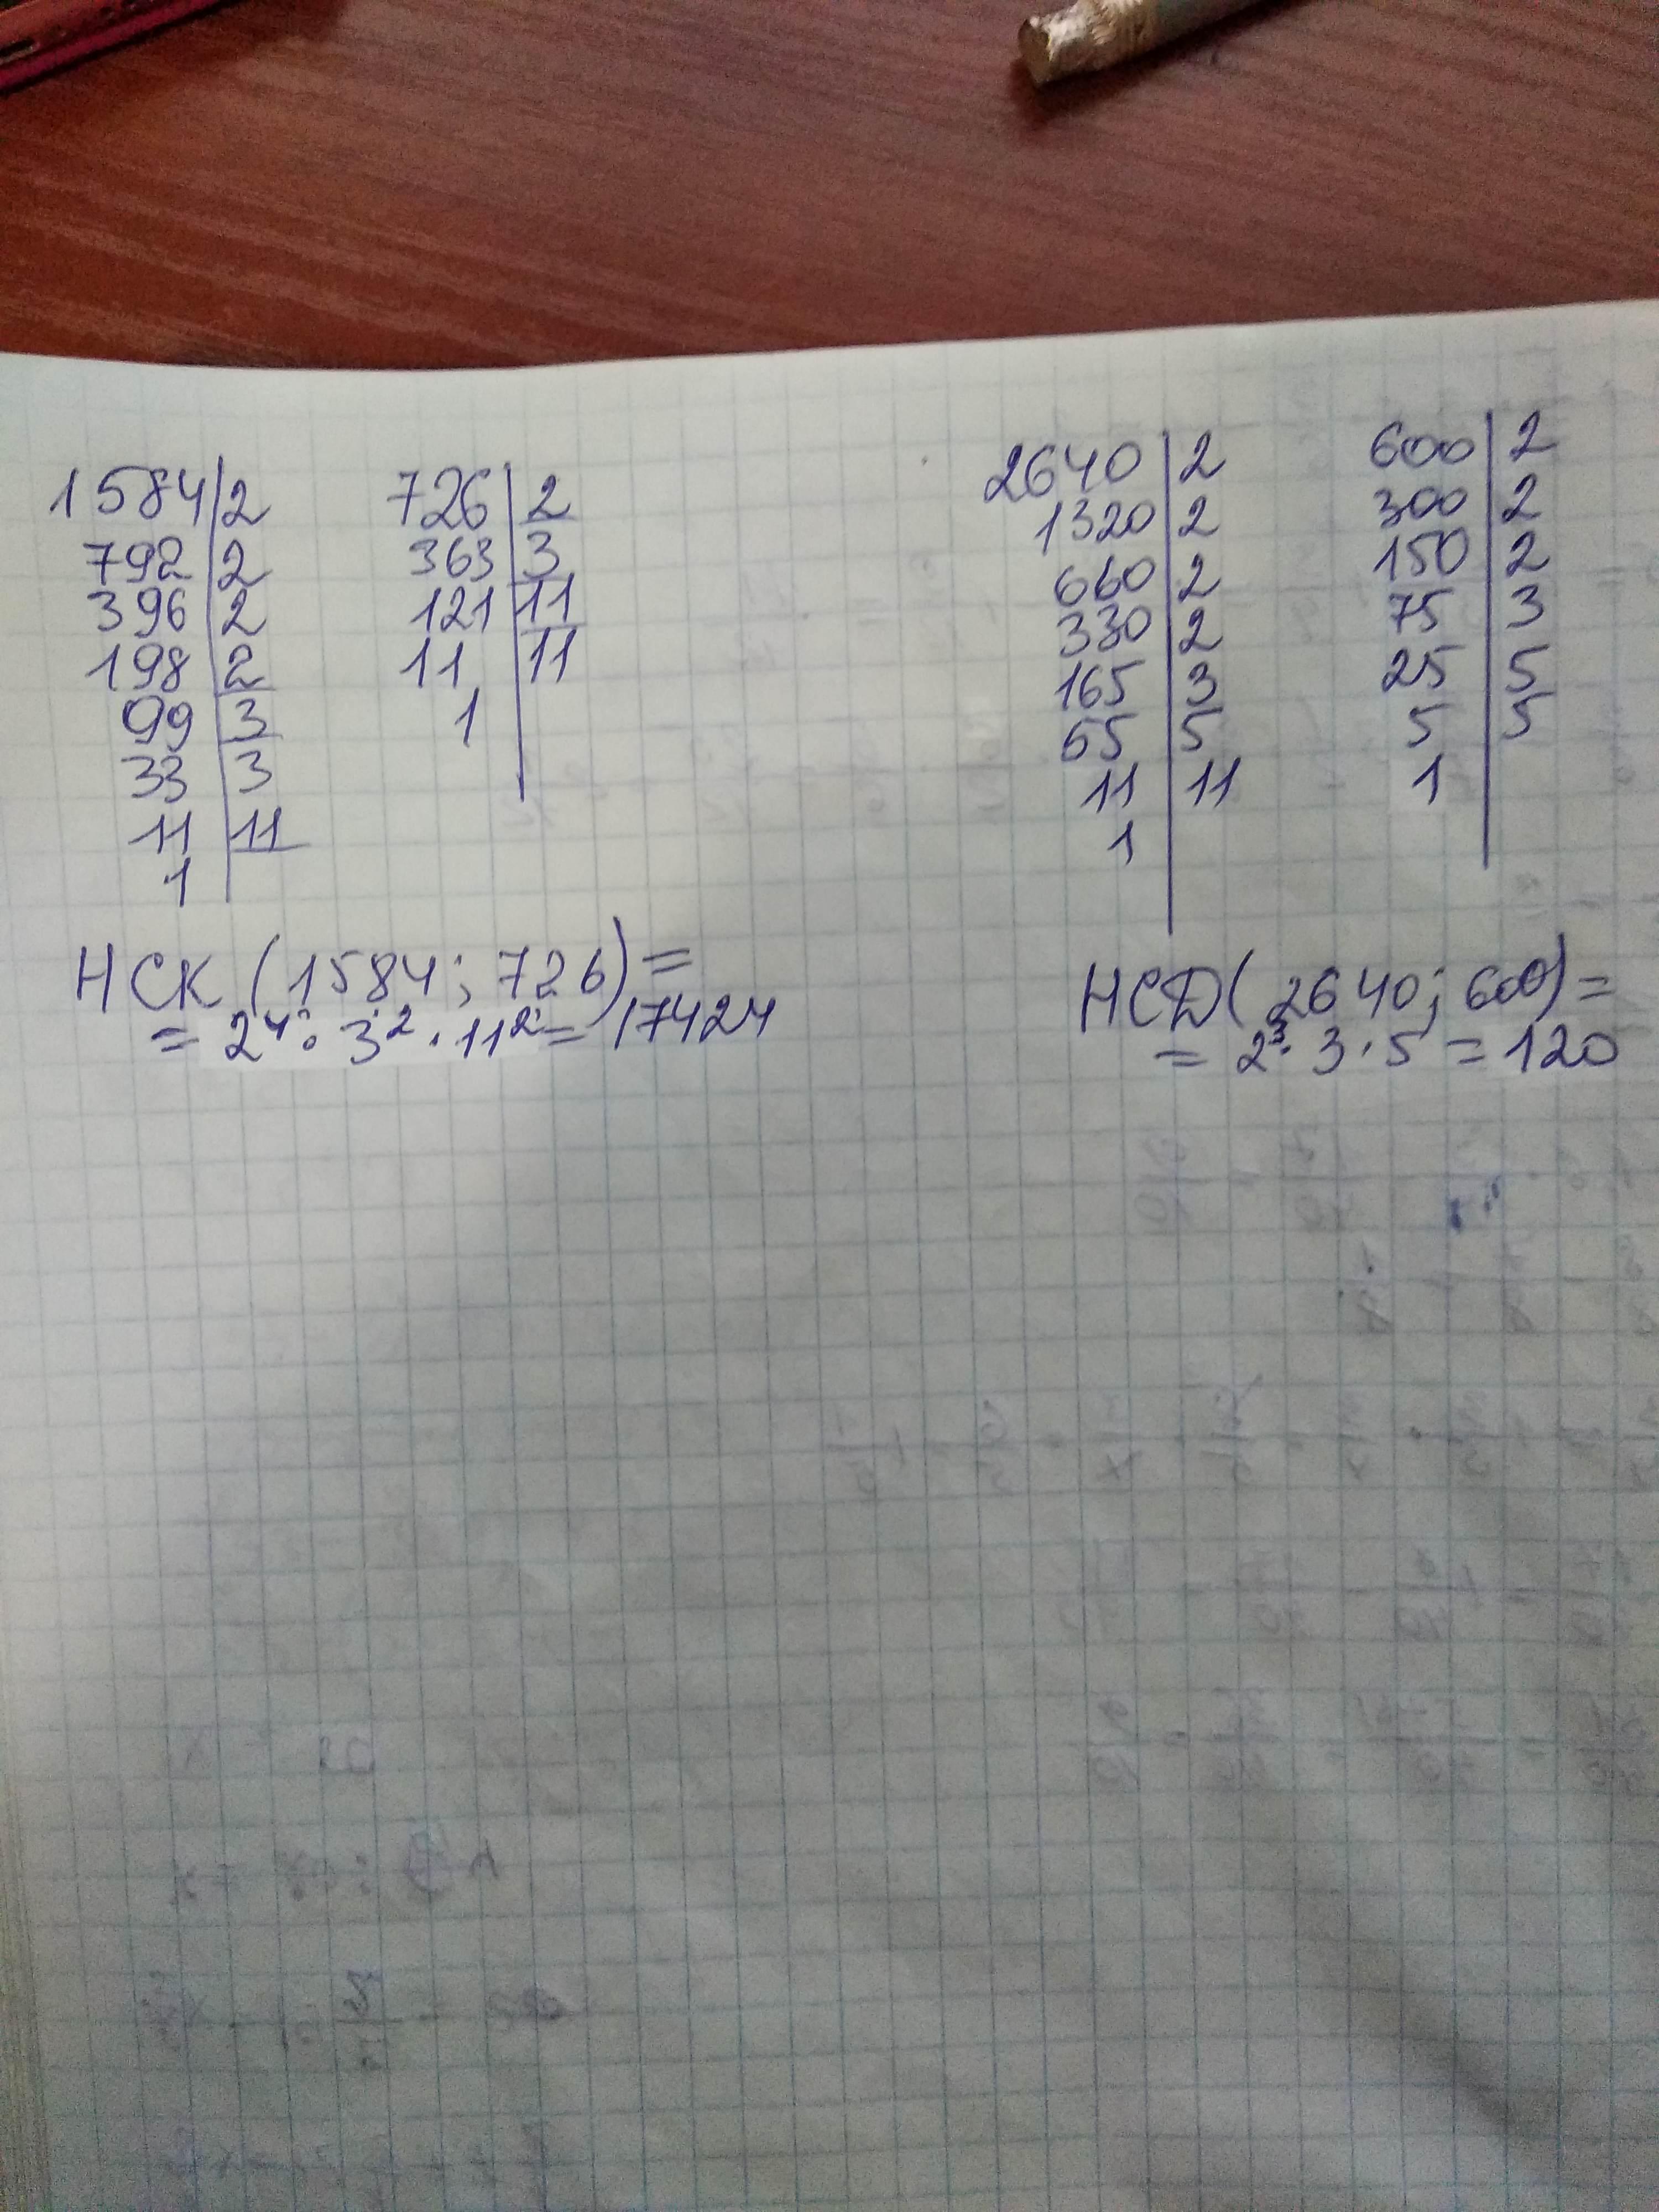 1584 | 2
792 | 2
396 | 2
198 | 2
99 | 3
33 | 3
11 | 11
1
726 | 2
363 | 3
121 | 11
11 | 11
1
НСК (1584; 726) =
= 2⁴ · 3² · 11² = 17424
2640 | 2
1320 | 2
660 | 2
330 | 2
165 | 3
55 | 5
11 | 11
1
600 | 2
300 | 2
150 | 2
75 | 3
25 | 5
5 | 5
1
НСД (2640; 600) =
= 2³ · 3 · 5 = 120